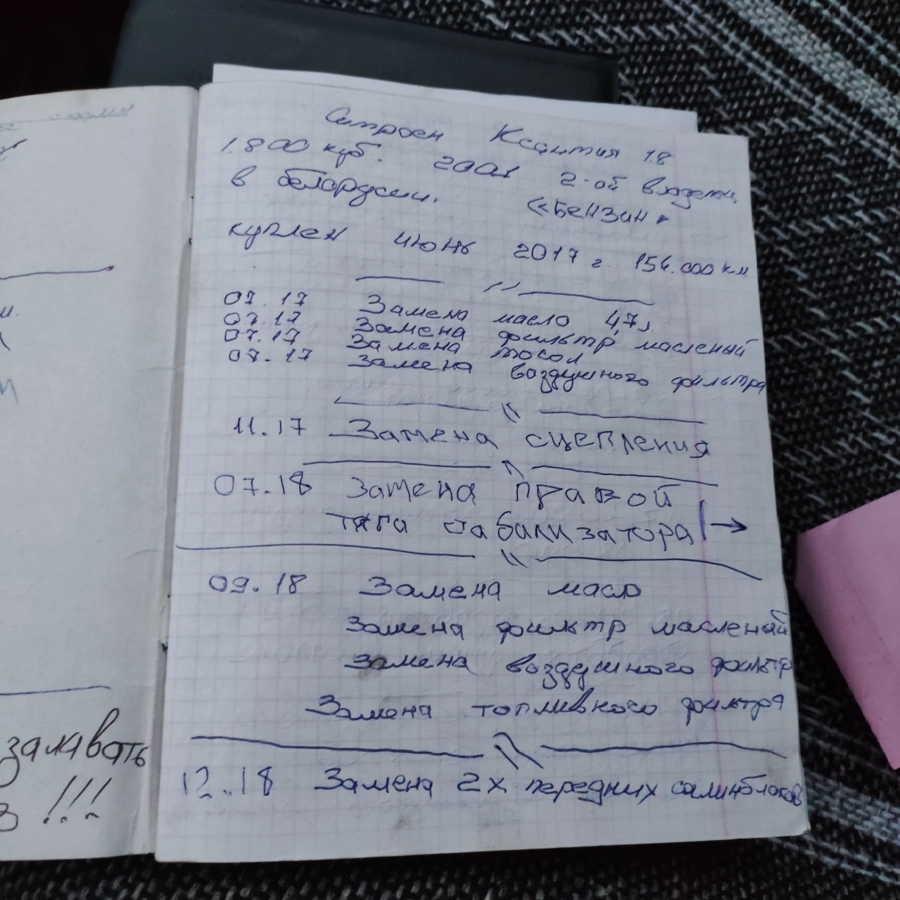 залавать
!!!
Ситроен Ксантия 1.8
1.800 куб. 2001 2-ой владелец
в белоруссии. «Бензин»
куплен июнь 2017 г. 156.000 км
07.17 Замена масло 4,7 л
07.17 Замена фильтр масленый
07.17 Замена тосол
07.17 замена воздушного фильтра
11.17 Замена сцепления
07.18 Замена правой
тяга стабализатора →
09.18 Замена масло
Замена фильтр масленый
Замена воздушного фильтр
Замена топливного фильтра
12.18 Замена 2х передних салинблоков